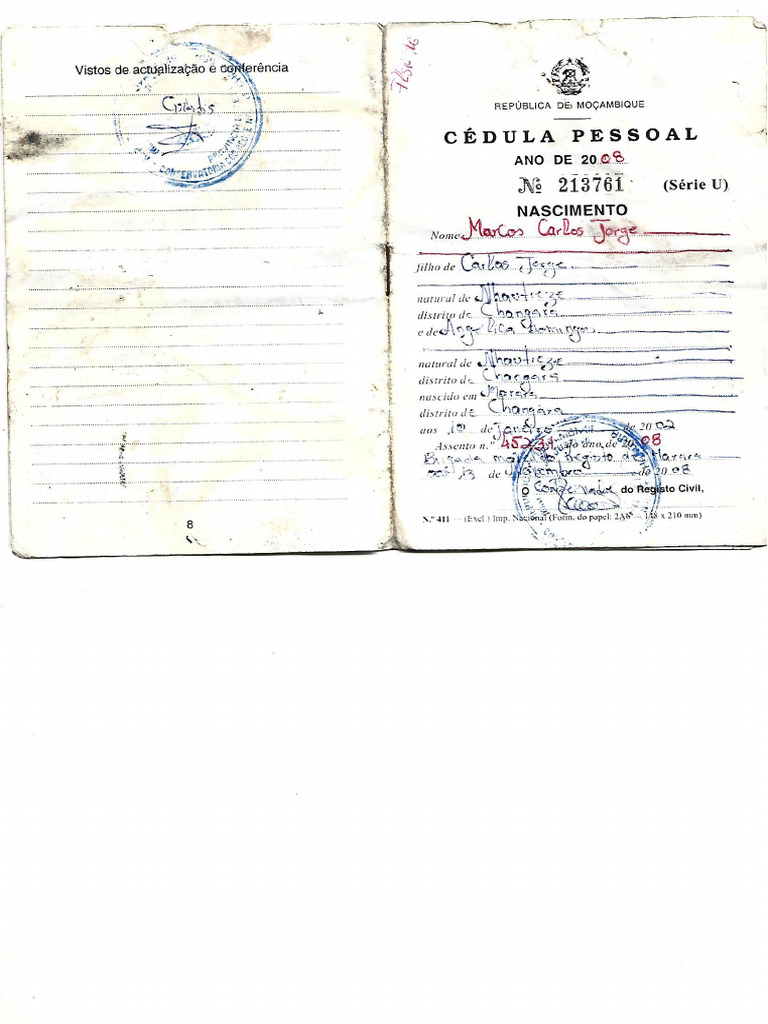 Vistos de actualização e conferência
CONSERVATÓRIA
PROVINCIAL
8
REPÚBLICA DE MOÇAMBIQUE
CÉDULA PESSOAL
ANO DE 2008
Nº 213761 (Série U)
NASCIMENTO
Nome Marcos Carlos Jorge
filho de Carlos Jorge
natural de Nhautieze
distrito de Changara
e de Angélica Domingos
natural de Nhautieze
distrito de Changara
nascido em Marara
distrito de Changara
aos de Janeiro de 2002
Assento n.º do ano de 2008
Brigada de Registo de Marara
13 de de 2008
Conservador do Registo Civil,
N.º 411 — (Excl.) Imp. Nacional (Form. do papel: 2A6 — 148 x 210 mm)